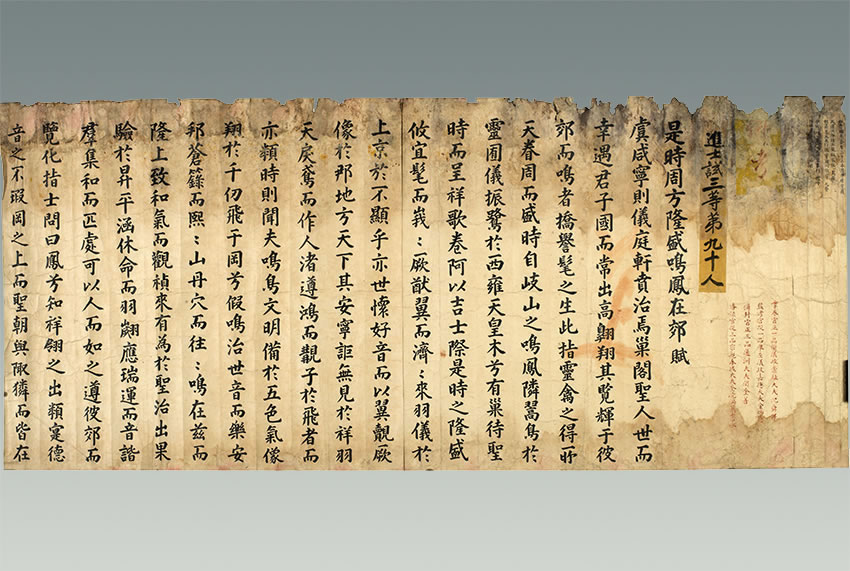 進士試三等第九十人
是時周方隆盛鳴鳳在郊 賦
虞咸寧則儀庭軒賁治焉巢閣聖人世而
幸遇君子國而常出高翺翔其覽輝于彼
郊而鳴者搞譽髦之生此指靈禽之得所
天眷周而盛時自歧山之鳴鳳隣翯鳥於
靈囿儀振鷺於西雍天皇木兮有巢待聖
時而呈祥歌卷阿以吉士際是時之隆盛
攸宜髦而峩〻厥猷翼而濟〻來羽儀於
上京於丕顯乎亦世懷好音而以翼覩厥
像於郊地方天下其安寧詎無見於祥羽
天戾鳶而作人渚遵鴻而覯子於飛者而
亦頪時則聞夫鳴鳥文明備於五色氣像
翔於千仞飛于岡兮假鳴治世音而樂安
邦蒼籙而熙〻山丹穴而往〻鳴在兹而
隆上致和氣而觀禎來有為於聖治出果
驗於昇平涵休命而羽翽應瑞運而音諧
羣集和而匹處可以人而如之遵彼郊而
覽化指士問曰鳳兮知祥翎之出頪寔德
音之不瑕岡之上而聖朝與陬獜而皆在